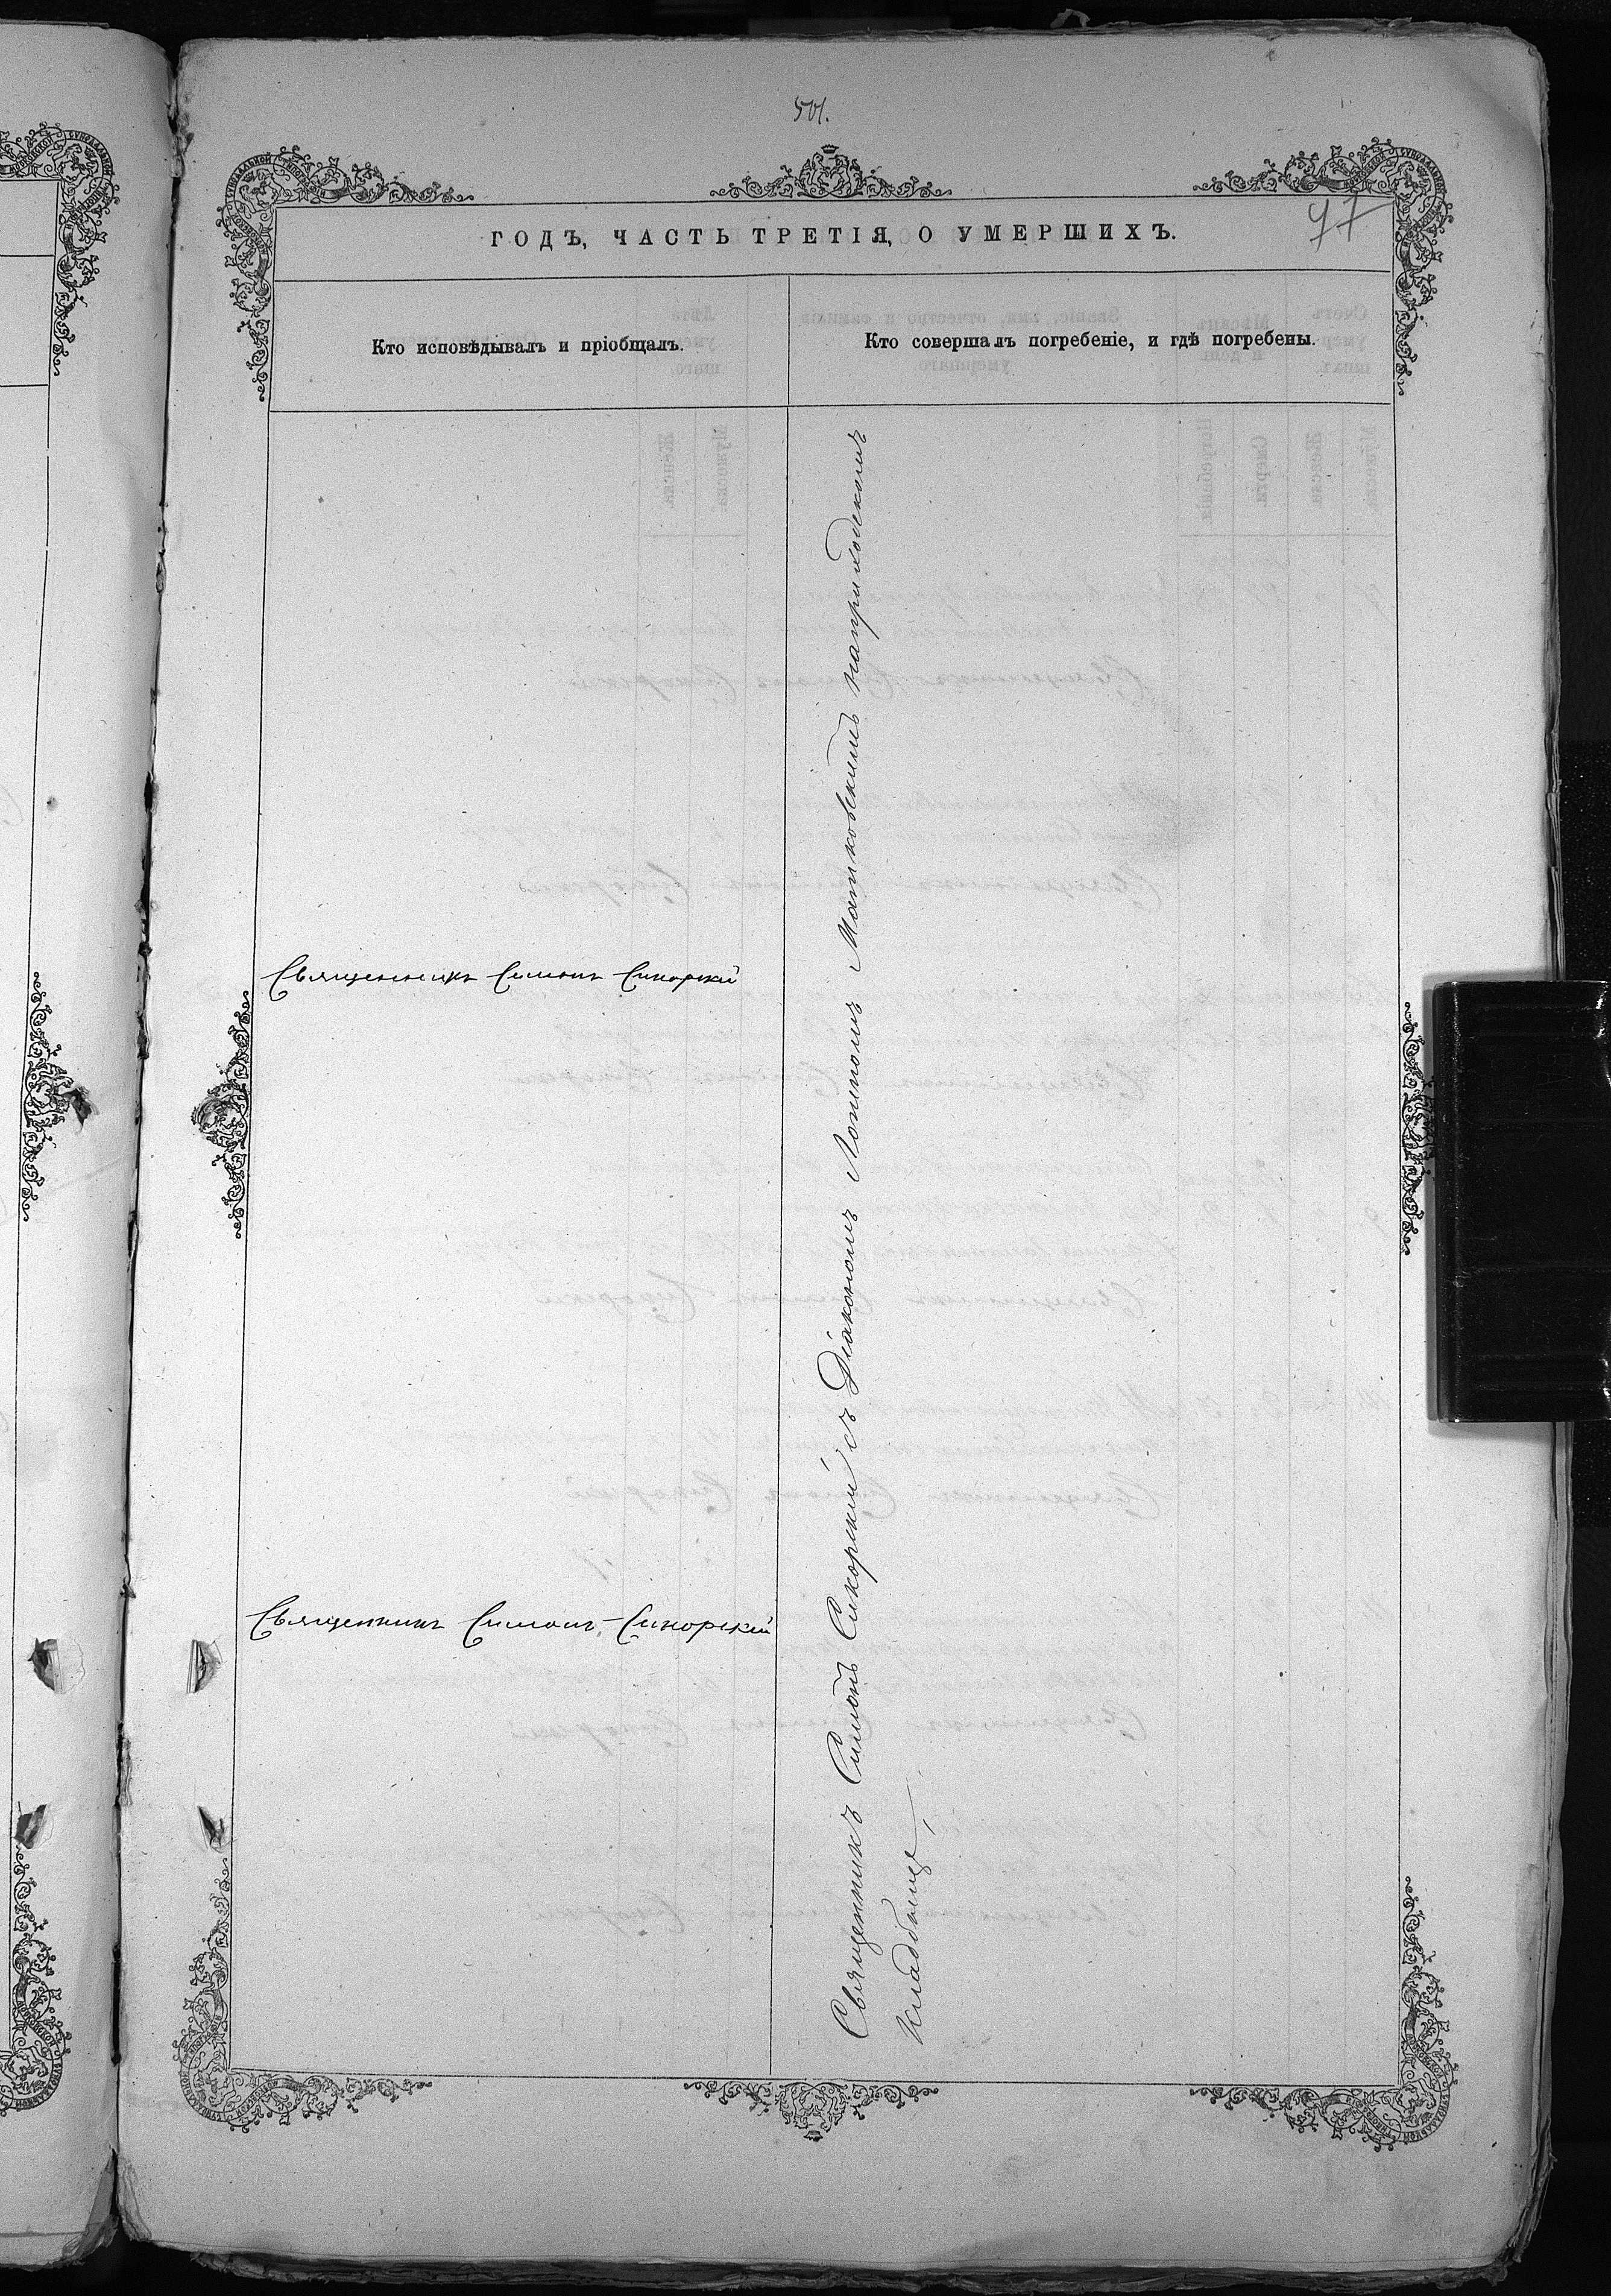 501.
97
ГОДЪ, ЧАСТЬ ТРЕТІЯ, О УМЕРШИХЪ.
Кто исповѣдывалъ и пріобщалъ.
Кто совершалъ погребеніе, и гдѣ погребены.
Священникъ Симонъ Сикорскій
Священникъ Симонъ Сикорскій
Священникъ Симонъ Сикорскій съ Діакономъ Логиномъ Матковскимъ наприходскомъ
кладбищѣ